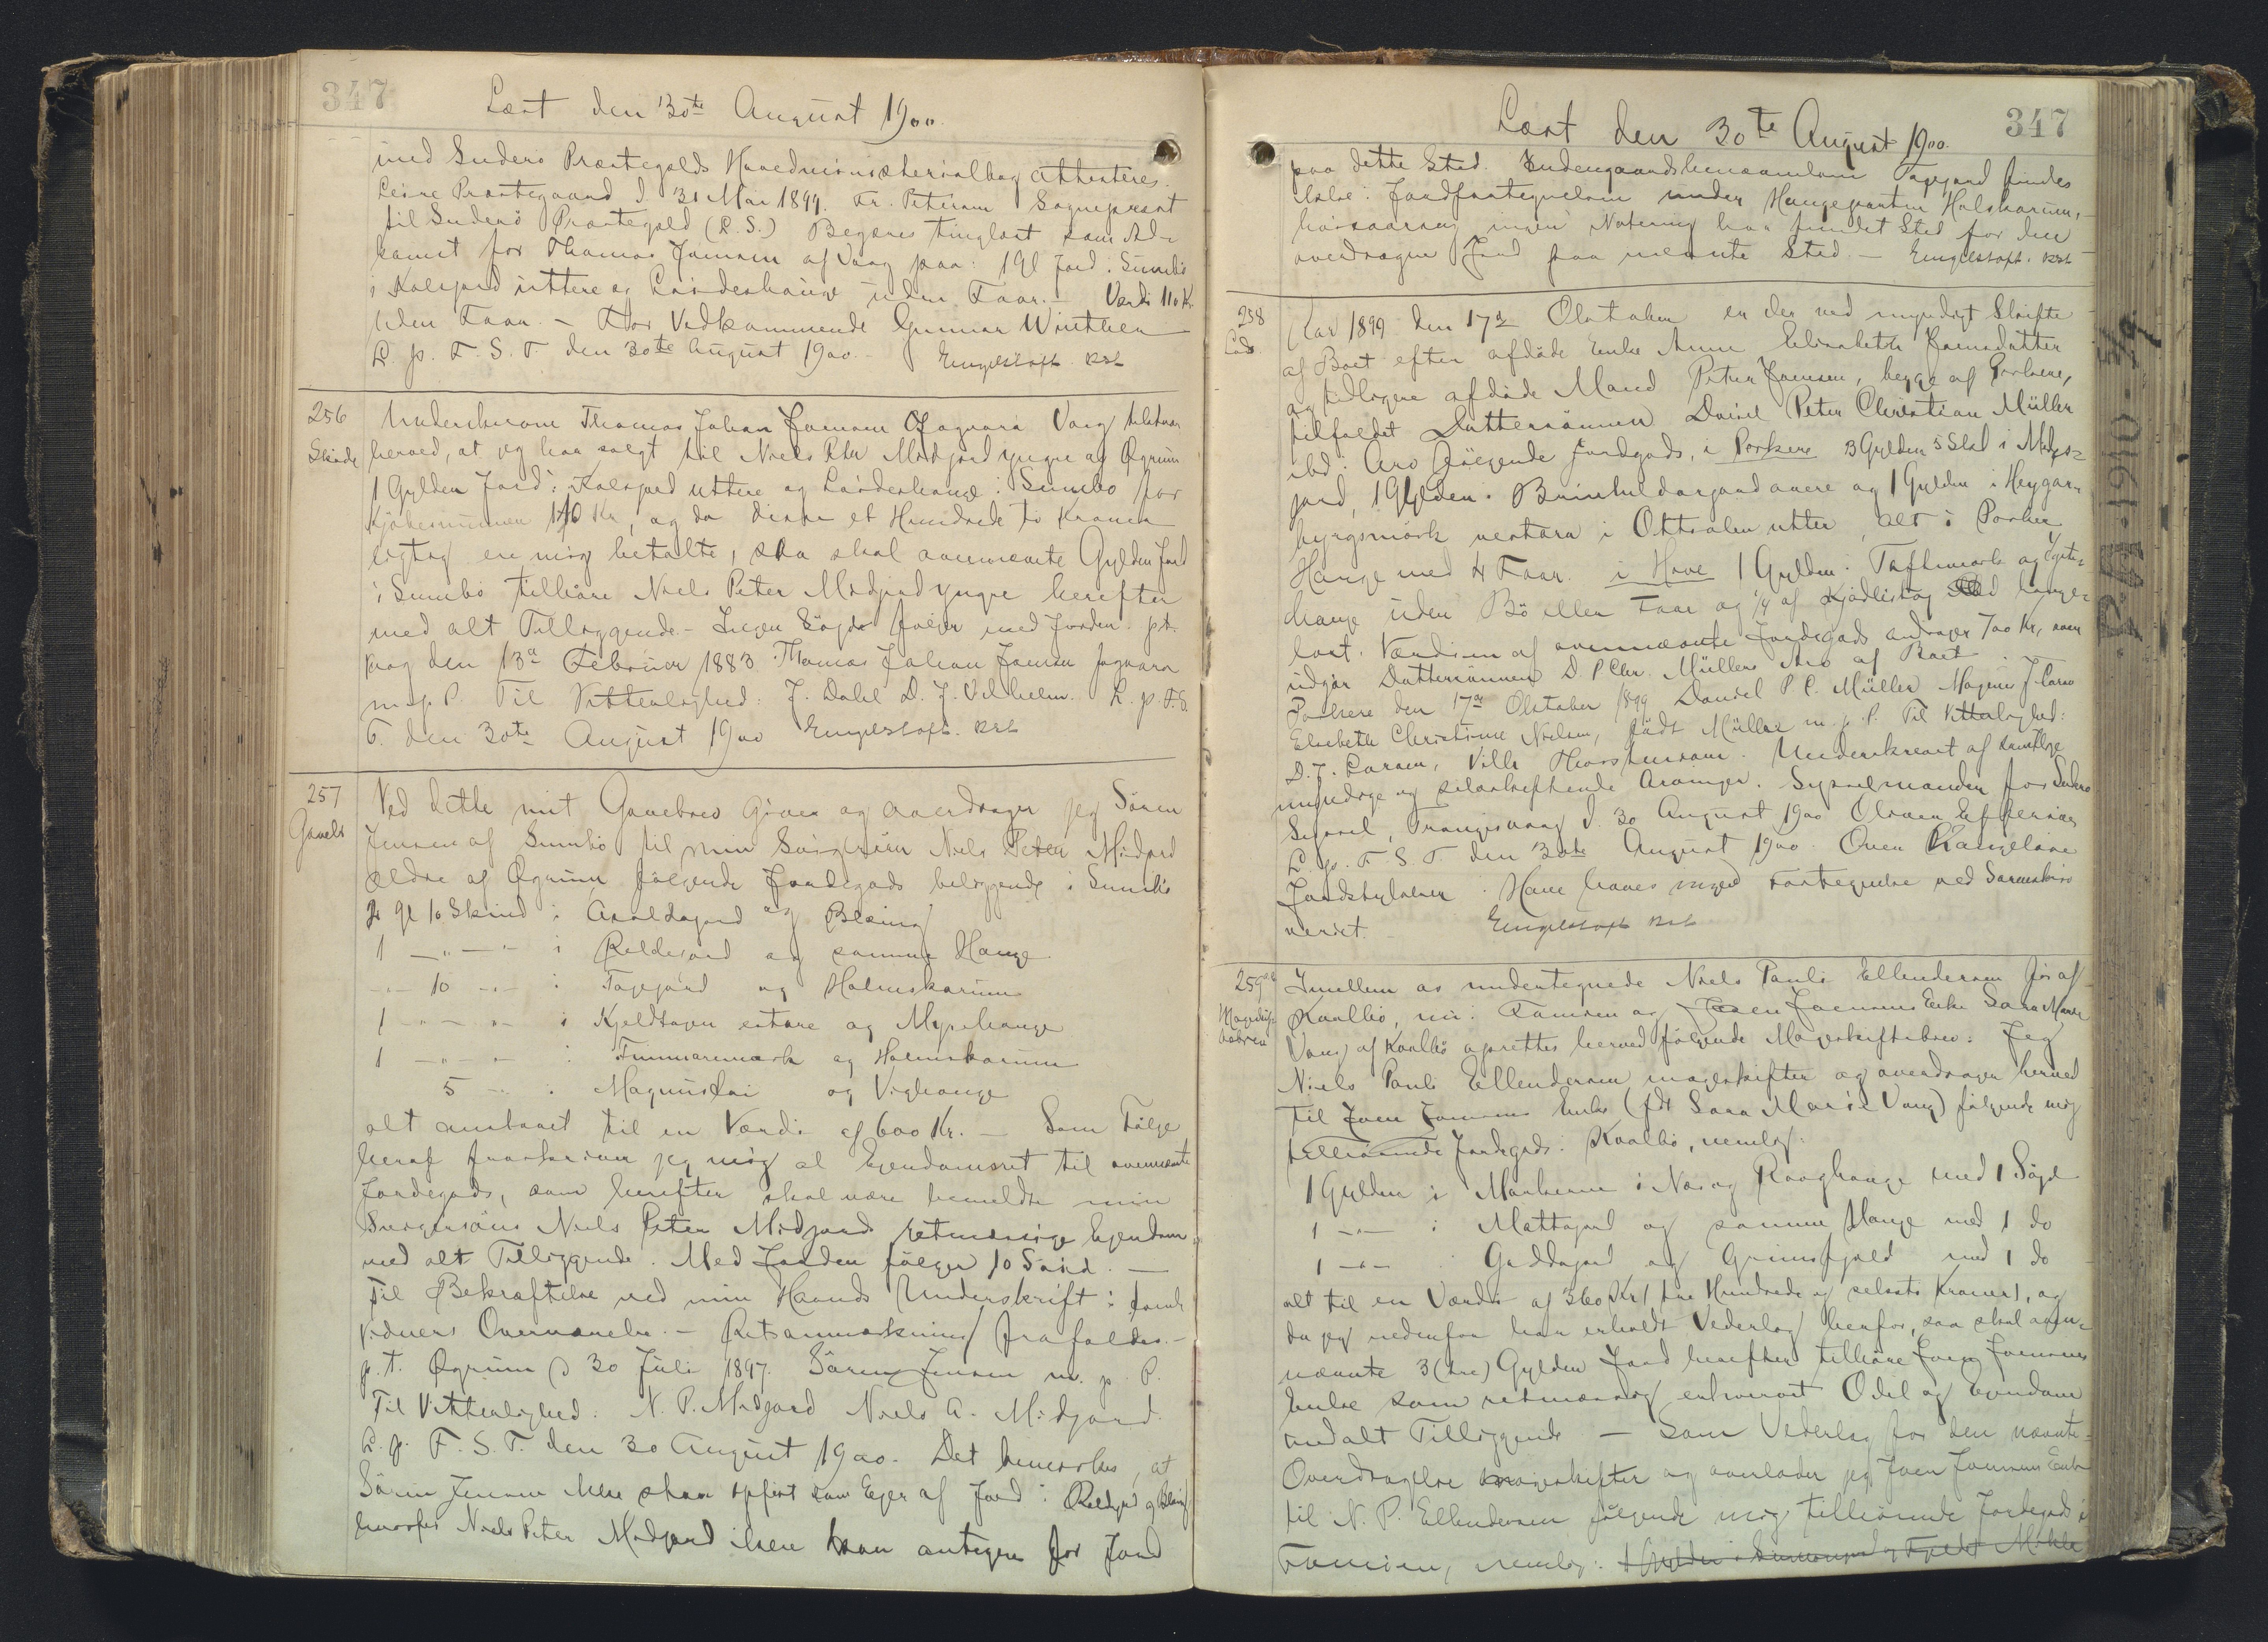 347
Læst den 30te August 1900.
med Suderö Præstegjelds Hovedministerialbog attesteres.
Præstegaard d. 31 Mai 1899. Fr. Petersen Sognepræst
til Suderö Præstegjeld (L.S.) Begæres tinglæst som Ad=
komst for Thomas Joensen af Vaag paa: 1 Gl Jord i Sumbö
i Kalvgard uttere og uden Faar. - Værdi 110 Kr.
uden Faar. - For Vedkommende Gunnar Winther
L. p. F. S. T. den 30te August 1900. - Engelstoft. kst
256
Skjöde
Underskrevne Thomas Johan Joensen Vaag tilstaar
herved, at jeg har solgt til Niels Peter Midjord yngre af Øgrum
1 Gylden Jord i Kalvgard uttere og i Sumbö for
Kjöbesummen 110 Kr, og da disse et Hundrede ti Kroner
rigtig ere mig betalte, saa skal ovennævnte Gylden Jord
i Sumbö tilhöre Niels Peter Midjord yngre herefter
med alt Tilliggende - Ingen Söjde fölger med Jorden. pt.
Vaag den 13de Februar 1883 Thomas Johan Joensen
m. p. P. Til Vitterlighed: J. Dahl D. J. Vilhelm. L. p. F. S.
T. den 30te August 1900 Engelstoft. kst
257
Gavebr
Ved dette mit Gavebrev giver og overdrager jeg Sören
Jensen af Sumbö til min Svigersön Niels Peter Midjord
ældre af Øgrum fölgende Jordegods beliggende i Sumbö
2 Gl 10 Skind i og Blæing
1 - " - " - i og samme Hauge
- " - 10 - " - i Tagejord og Halmskarum
1 - " - " - i Kjeldhagen eistare og Myrehauge
1 - " - " - i og Halmskarum
5 - " - i og Vighauge
alt ansat til en Værdi af 600 Kr. - Som Fölge
heraf fraskriver jeg mig al Ejendomsret til ovennævnte
Jordegods, som herefter skal være bemeldte min
Svigersöns Niels Peter Midjords retmæssige Ejendom
med alt Tilliggende. Med Jorden fölger 10 Söjd. -
Til Bekræftelse ved min Haands Underskrift i
Vidners Overværelse. - Retsanmærkning frafaldes. -
p. t. Øgrum d 30 Juli 1897. Sören Jensen m. p. P.
Til Vitterlighed: N. P. Midjord Niels A. Midjord.
L. p. F. S. T. den 30 August 1900. Det bemærkes, at
Sören Jensen ikke staar opfört som Ejer af Jord i og Blæing
hvorfor Niels Peter Midjord ikke kan antegnes for Jord
347
Læst den 30te August 1900.
paa dette Sted. Indengaardsbenævnelsen Tagejord findes
ikke i Jordfortegnelsen under Haugeparten Halskarum,
hvorfor ingen Notering har fundet Sted for den
overdragne Jord paa nævnte Sted. - Engelstoft. kst
258
Lods.
Aar 1899 den 17de Oktober er der ved myndigt Skifte
af Boet efter afdöde Enke Anne Elisabeth Joensdatter
og tidligere afdöde Mand Peter Joensen, begge af Porkere,
tilfaldet Dattersönnen Daniel Peter Christian Müller
ibd. i Arv fölgende Jordgods, i Porkere 3 Gylden 5 Skd i
jord, 1 Gylden i og 1 Gylden i Heygar
byrgsmörk vestara i uttri, alt i Porkere
Hauge med 4 Faar. i Hove 1 Gylden i Toftemark og
hauge uden Bö eller Faar og 1/4 af
lost. Værdien af ovennævnte Jordegods andrager 700 Kr, som
udgör Dattersönnen D. P. Chr. Müllers Arv af Boet.
Porkere den 17de Oktober 1899 Daniel P. C. Müller Mogens J. Larsen
Elsebeth Christine Nielsen, födt Müller m. p. P. Til Vitterlighed:
D. J. Larsen, Ville Thorsteinsen. Underskrevet af samtlige
myndige og selvskiftende Arvinger. Sysselmanden for Suderö
Syssel, Trangisvaag d. 30 August 1900
L. p. F. S. T. den 30te August 1900. Oven
Jordstykkerne i Hove haves ingen Fortegnelse ved
veriet. Engelstoft kst
259
Mageskifte
brev
Imellem os undertegnede Niels Pauli Ellendersen för af
Kvalbö, nu i Famien og Joen Joensens Enke Sara Marie
Vang af Kvalbö oprettes herved fölgende Mageskiftebrev: Jeg
Niels Pauli Ellendersen mageskifter og overdrager herved
til Joen Joensens Enke (fdt Sara Marie Vang) fölgende mig
tilhörende Jordegods i Kvalbö, nemlig:
1 Gylden i i Nes og Hauge med 1 Söjd
1 - " - i Mattagard og samme Hauge med 1 do
1 - " - i Geddagard og Grimsfjeld med 1 do
alt til en Værdi af 360 Kr (tre Hundrede og seksti Kroner), og
da jeg nedenfor har erholdt Vederlag herfor, saa skal oven=
nævnte 3 (tre) Gylden Jord herefter tilhöre Joen Joensens
Enke som retmæssig erhvervet Odel og Ejendom
med alt Tilliggende - Som Vederlag for den nævnte
Overdragelse mageskifter og overlader jeg Joen Joensens Enke
til N. P. Ellendersen fölgende mig tilhörende Jordegods i
Famien, nemlig: 1 Gylden i